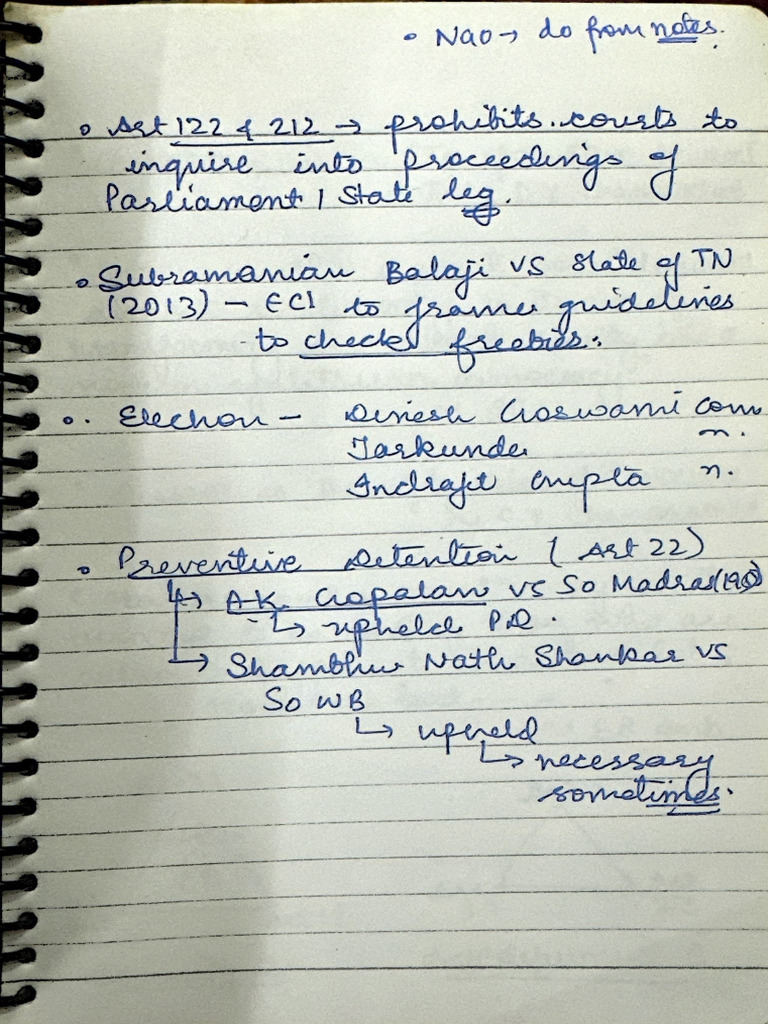 • Nao → do from notes.
• Art 122 & 212 → prohibits courts to
inquire into proceedings of
Parliament / State leg.
• Subramanian Balaji vs State of TN
(2013) – ECI to frame guidelines
to check freebies.
• Election – Dinesh Goswami Com
Tarkunde ".
Indrajit Gupta ".
• Preventive Detention (Art 22)
↳ A.K. Gopalan vs So Madras (1950)
↳ upheld P.D.
↳ Shambhu Nath Shankar vs
So WB
↳ upheld
↳ necessary
sometimes.